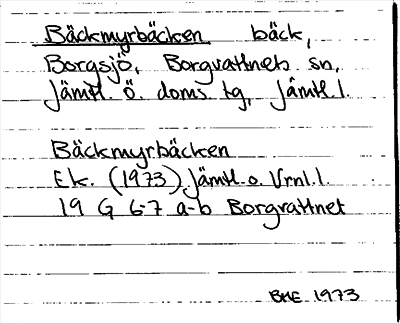 Bäckmyrbäcken, bäck,
Borgsjö, Borgvattnets sn,
Jämtl. Ö. doms. tg, Jämtl. l.
Bäckmyrbäcken
Ek. (1973) Jämtl. o. Vrnl. l.
19 G 6-7 a-b Borgvattnet
BHE 1973